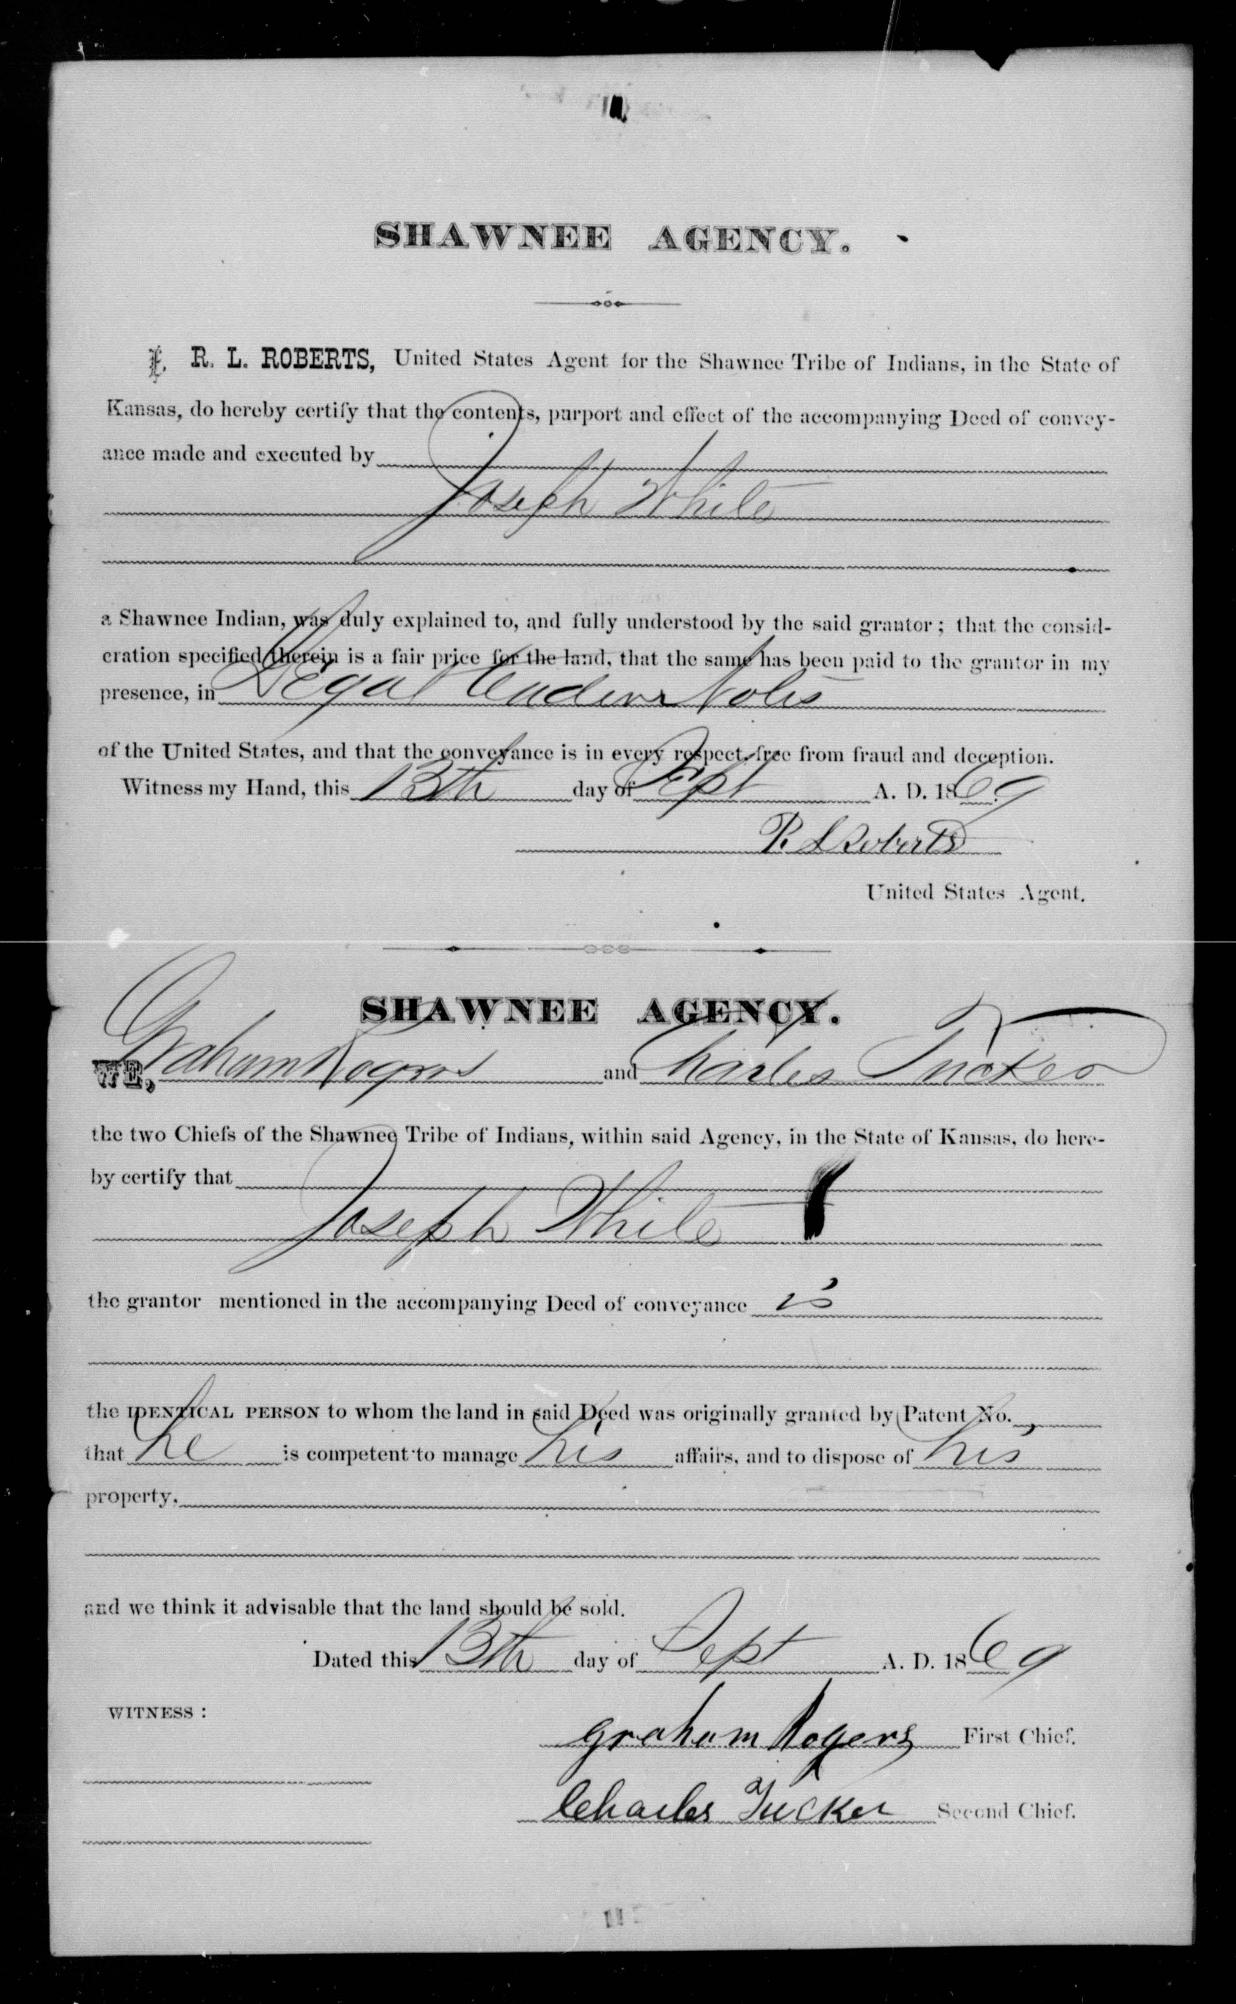 SHAWNEE AGENCY.
I, R. L. ROBERTS, United States Agent for the Shawnee Tribe of Indians, in the State of
Kansas, do hereby certify that the contents, purport and effect of the accompanying Deed of convey-
ance made and executed by
Joseph White
a Shawnee Indian, was duly explained to, and fully understood by the said grantor; that the consid-
eration specified therein is a fair price for the land, that the same has been paid to the grantor in my
presence, in Legal Tender Notes
of the United States, and that the conveyance is in every respect, free from fraud and deception.
Witness my Hand, this 13th day of Sept A. D. 1869
R. L Roberts
United States Agent.
SHAWNEE AGENCY.
WE, Graham Rogers and Charles Tucker
the two Chiefs of the Shawnee Tribe of Indians, within said Agency, in the State of Kansas, do here-
by certify that
Joseph White
the grantor mentioned in the accompanying Deed of conveyance is
the IDENTICAL PERSON to whom the land in said Deed was originally granted by Patent No. ,
that he is competent to manage his affairs, and to dispose of his
property,
and we think it advisable that the land should be sold.
Dated this 13th day of Sept A. D. 1869
WITNESS:
Graham Rogers First Chief.
Charles Tucker Second Chief.